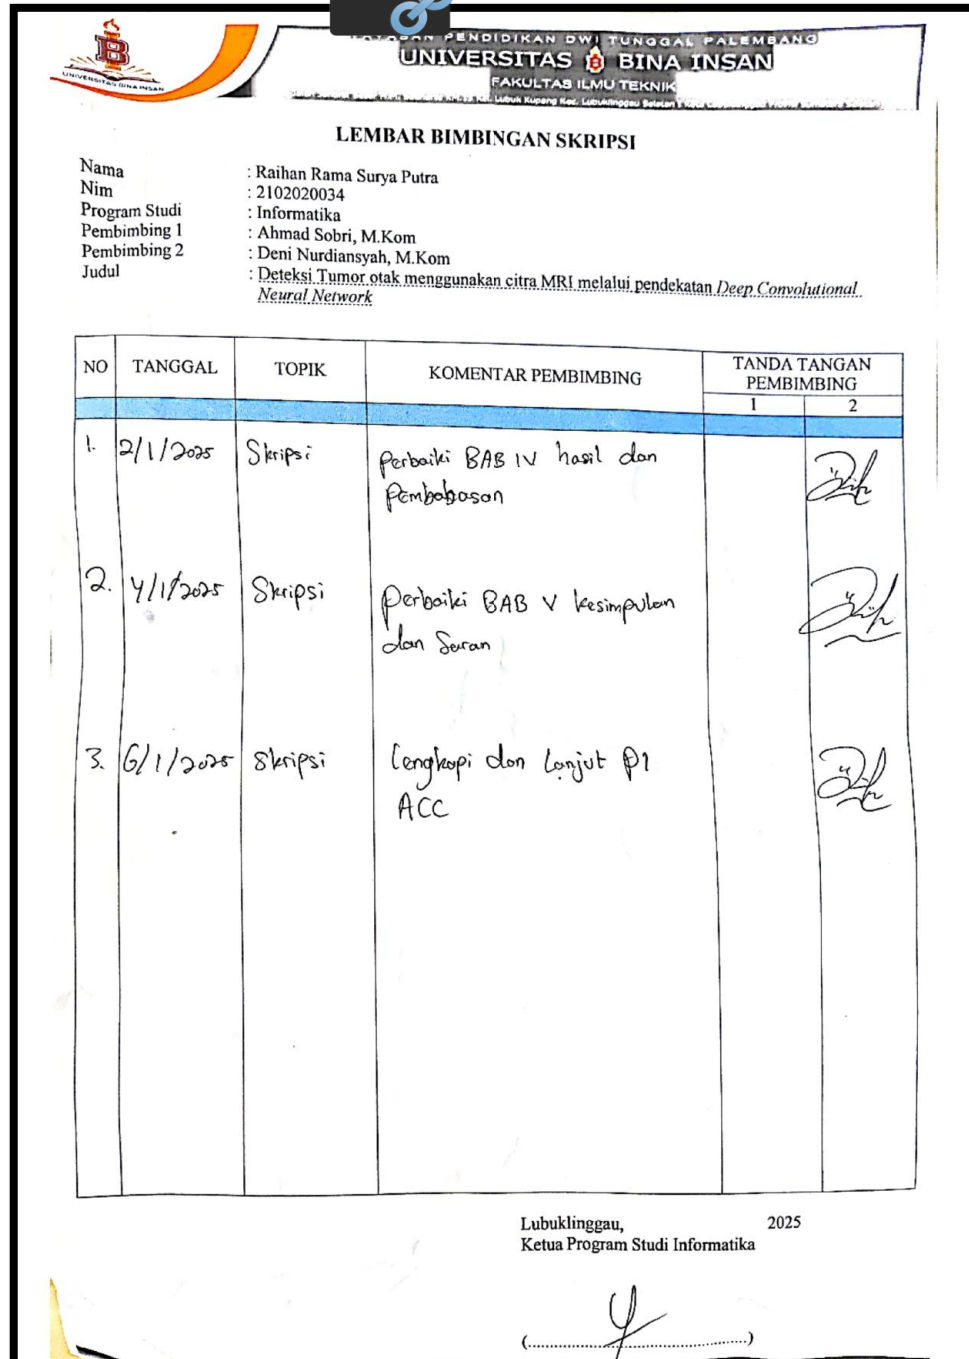 UNIVERSITAS BINA INSAN
PENDIDIKAN DWI TUNGGAL PALEMBANG
UNIVERSITAS B BINA INSAN
FAKULTAS ILMU TEKNIK
Lubuk Kupang Kec. Lubuklinggau Selatan
LEMBAR BIMBINGAN SKRIPSI
Nama : Raihan Rama Surya Putra
Nim : 2102020034
Program Studi : Informatika
Pembimbing 1 : Ahmad Sobri, M.Kom
Pembimbing 2 : Deni Nurdiansyah, M.Kom
Judul : Deteksi Tumor otak menggunakan citra MRI melalui pendekatan Deep Convolutional
Neural Network
NO TANGGAL TOPIK KOMENTAR PEMBIMBING TANDA TANGAN PEMBIMBING
1 2
1. 2/1/2025 Skripsi Perbaiki BAB IV hasil dan
Pembahasan
2. 4/1/2025 Skripsi Perbaiki BAB V kesimpulan
dan Saran
3. 6/1/2025 Skripsi Lengkapi dan Lanjut P1
ACC
Lubuklinggau, 2025
Ketua Program Studi Informatika
(..............................................)